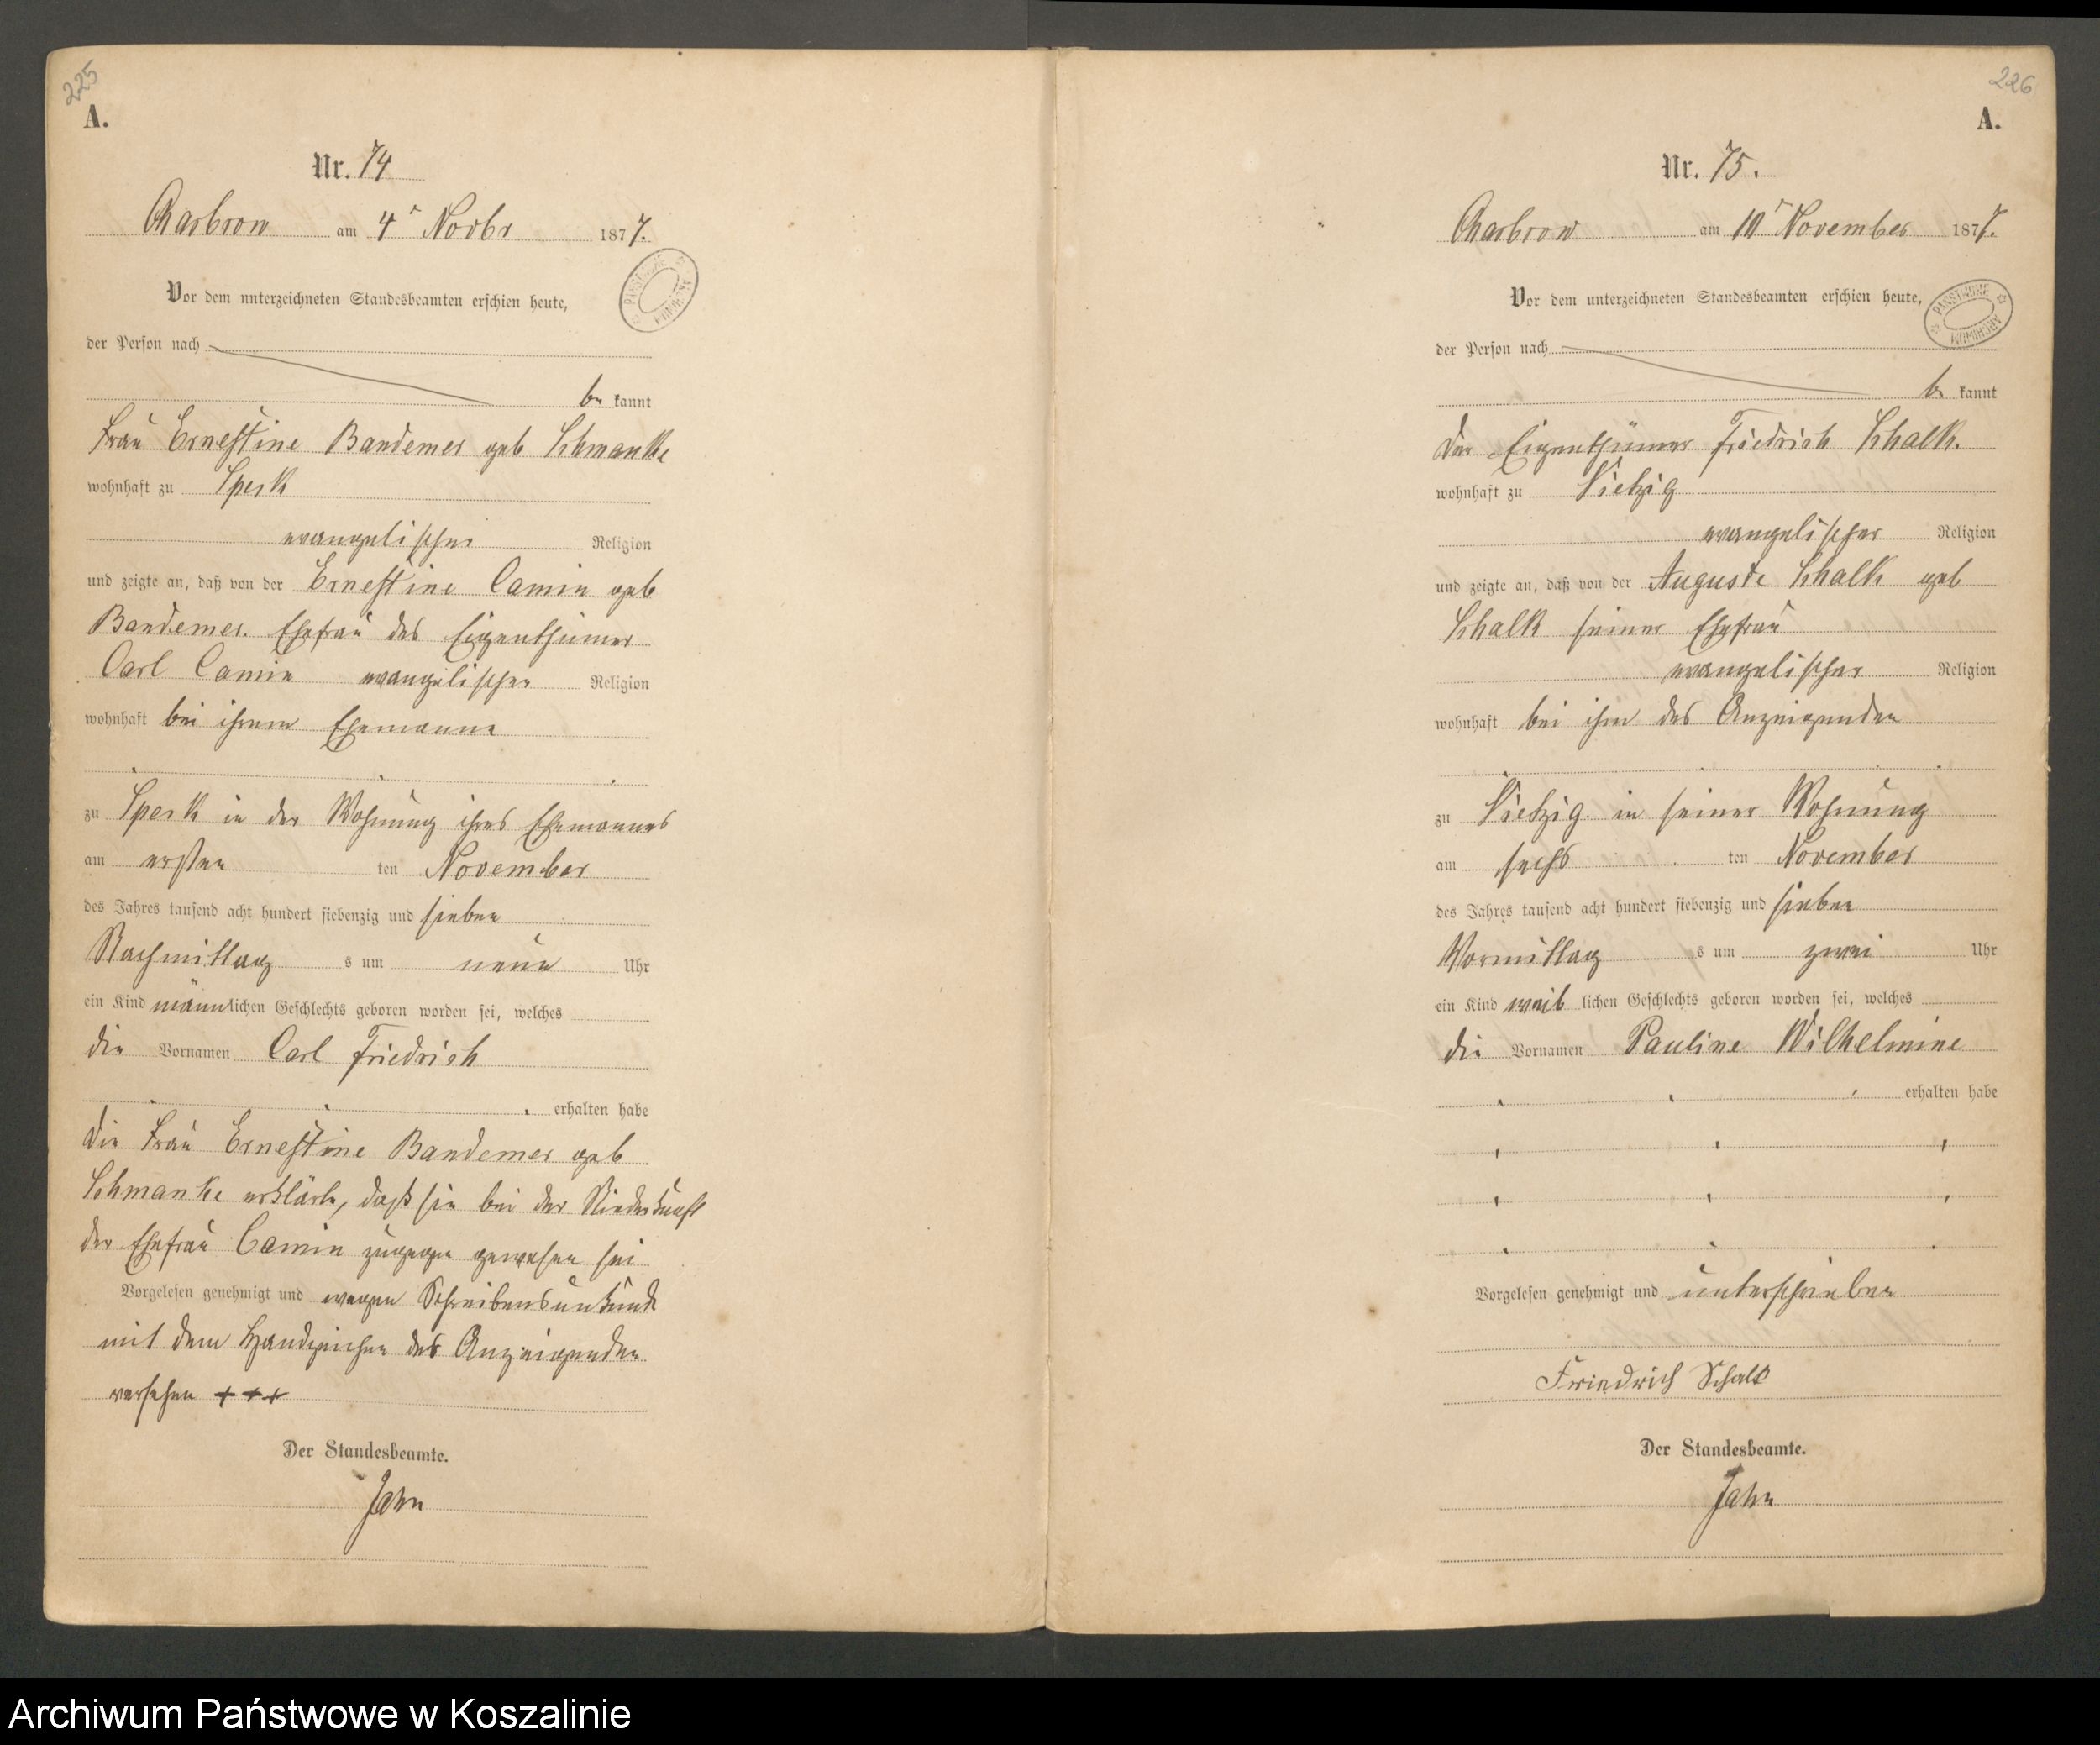 225
A.
Nr. 74
Charbrow am 4t Novbr 1877.
Vor dem unterzeichneten Standesbeamten erschien heute,
der Person nach
be kannt
Frau Ernestine Bandemer geb Schmanke
wohnhaft zu Speck
evangelischer Religion
und zeigte an, daß von der Ernestine Camin geb
Bandemer. Ehefrau des Eigenthümer
Carl Camin evangelischer Religion
wohnhaft bei ihrem Ehemanne
zu Speck in der Wohnung ihres Ehemannes
am ersten ten November
des Jahres tausend acht hundert siebenzig und sieben
Nachmittag s um neun Uhr
ein Kind männlichen Geschlechts geboren worden sei, welches
die Vornamen Carl Friedrich
erhalten habe
Die Frau Ernestine Bandemer geb
Schmanke erklärte, daß sie bei der Niederkunft
der Ehefrau Camin zugegen gewesen sei
Vorgelesen genehmigt und wegen Schreibensunkunde
mit dem Handzeichen des Anzeigenden
versehen +++
Der Standesbeamte.
Jahn
226
A.
Nr. 75.
Charbrow am 10t November 1877.
Vor dem unterzeichneten Standesbeamten erschien heute,
PANSTWOWE ARCHIWUM
der Person nach
be kannt
Der Eigenthümer Friedrich Schalk.
wohnhaft zu Vietzig
evangelischer Religion
und zeigte an, daß von der Auguste Schalk geb
Schalk seiner Ehefrau
evangelischer Religion
wohnhaft bei ihm des Anzeigenden
zu Vietzig. in seiner Wohnung
am sechs ten November
des Jahres tausend acht hundert siebenzig und sieben
Vormittag s um zwei Uhr
ein Kind weib lichen Geschlechts geboren worden sei, welches
die Vornamen Pauline Wilhelmine
erhalten habe
Vorgelesen genehmigt und unterschrieben
Friedrich Schalk
Der Standesbeamte.
Jahn
Archiwum Państwowe w Koszalinie